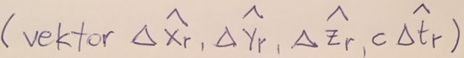 (vektor Δx̂r, Δŷr, Δẑr, cΔt̂r)